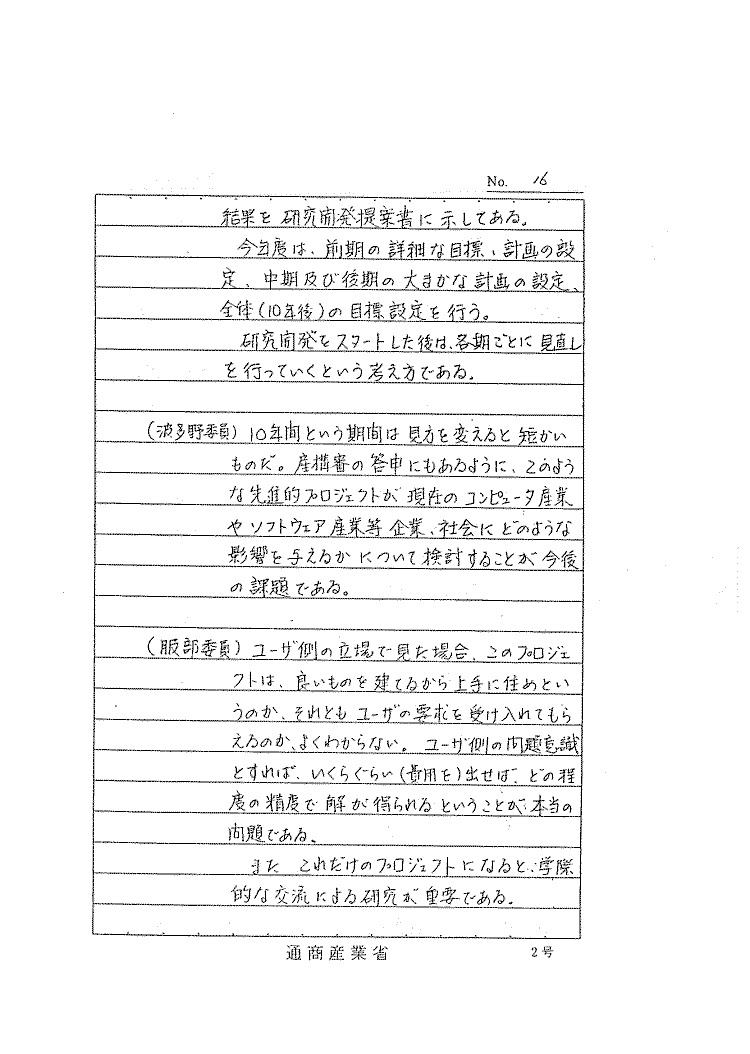 No. 16
結果を研究開発提案書に示してある。
今年度は、前期の詳細な目標、計画の設
定、中期及び後期の大まかな計画の設定、
全体(10年後)の目標設定を行う。
研究開発をスタートした後は、各期ごとに見直し
を行っていくという考え方である。
(波多野委員) 10年間という期間は見方を変えると短かい
ものだ。産構審の答申にもあるように、このよう
な先進的プロジェクトが現在のコンピュータ産業
やソフトウェア産業等企業、社会にどのような
影響を与えるかについて検討することが今後
の課題である。
(服部委員) ユーザ側の立場で見た場合、このプロジェ
クトは、良いものを建てるから上手に住めとい
うのか、それともユーザの要求を受け入れてもら
えるのか、よくわからない。ユーザ側の問題意識
とすれば、いくらぐらい(費用を)出せば、どの程
度の精度で解が得られるということが、本当の
問題である。
また これだけのプロジェクトになると、学際
的な交流による研究が重要である。
通商産業省 2号